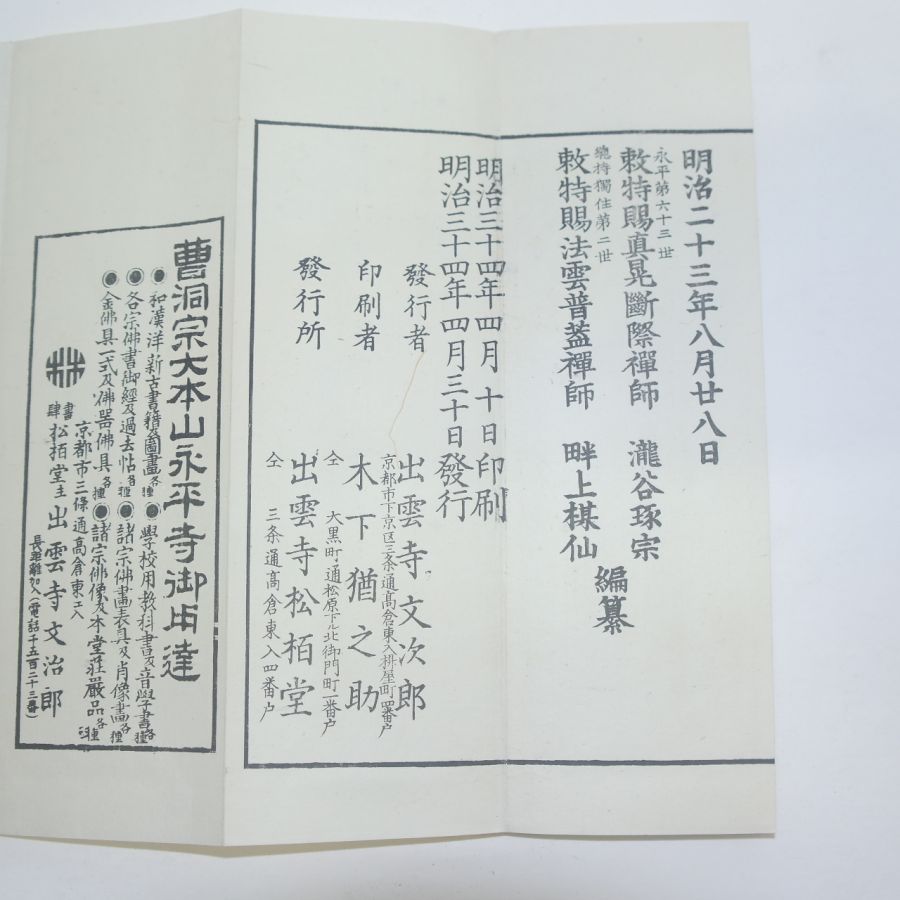 明治二十三年八月廿八日
永平第六十三世
敕特賜真晃斷際禪師 瀧谷琢宗
總持獨住第二世
敕特賜法雲普蓋禪師 畔上楳仙
編纂
明治三十四年四月十日印刷
明治三十四年四月三十日發行
京都市下京区三条通高倉東入桝屋町四番戸
發行者 出雲寺文次郎
仝 大黒町通松原下ル北御門町一番戸
印刷者 木下猶之助
仝 三条通高倉東入四番戸
發行所 出雲寺松栢堂
曹洞宗大本山永平寺御用達
●和漢洋新古書籍及圖畫各種 ●學校用教科書及音學書各種
●各宗佛書御經及過去帖各種 ●諸宗佛畫表具及肖像畫各種
●金佛具一式及佛器佛具各種 ●諸宗佛像及本堂莊嚴品各種
京都市三條通高倉東エ入
書肆 松栢堂主 出雲寺文治郎
長距離加入(電話千五百二十三番)